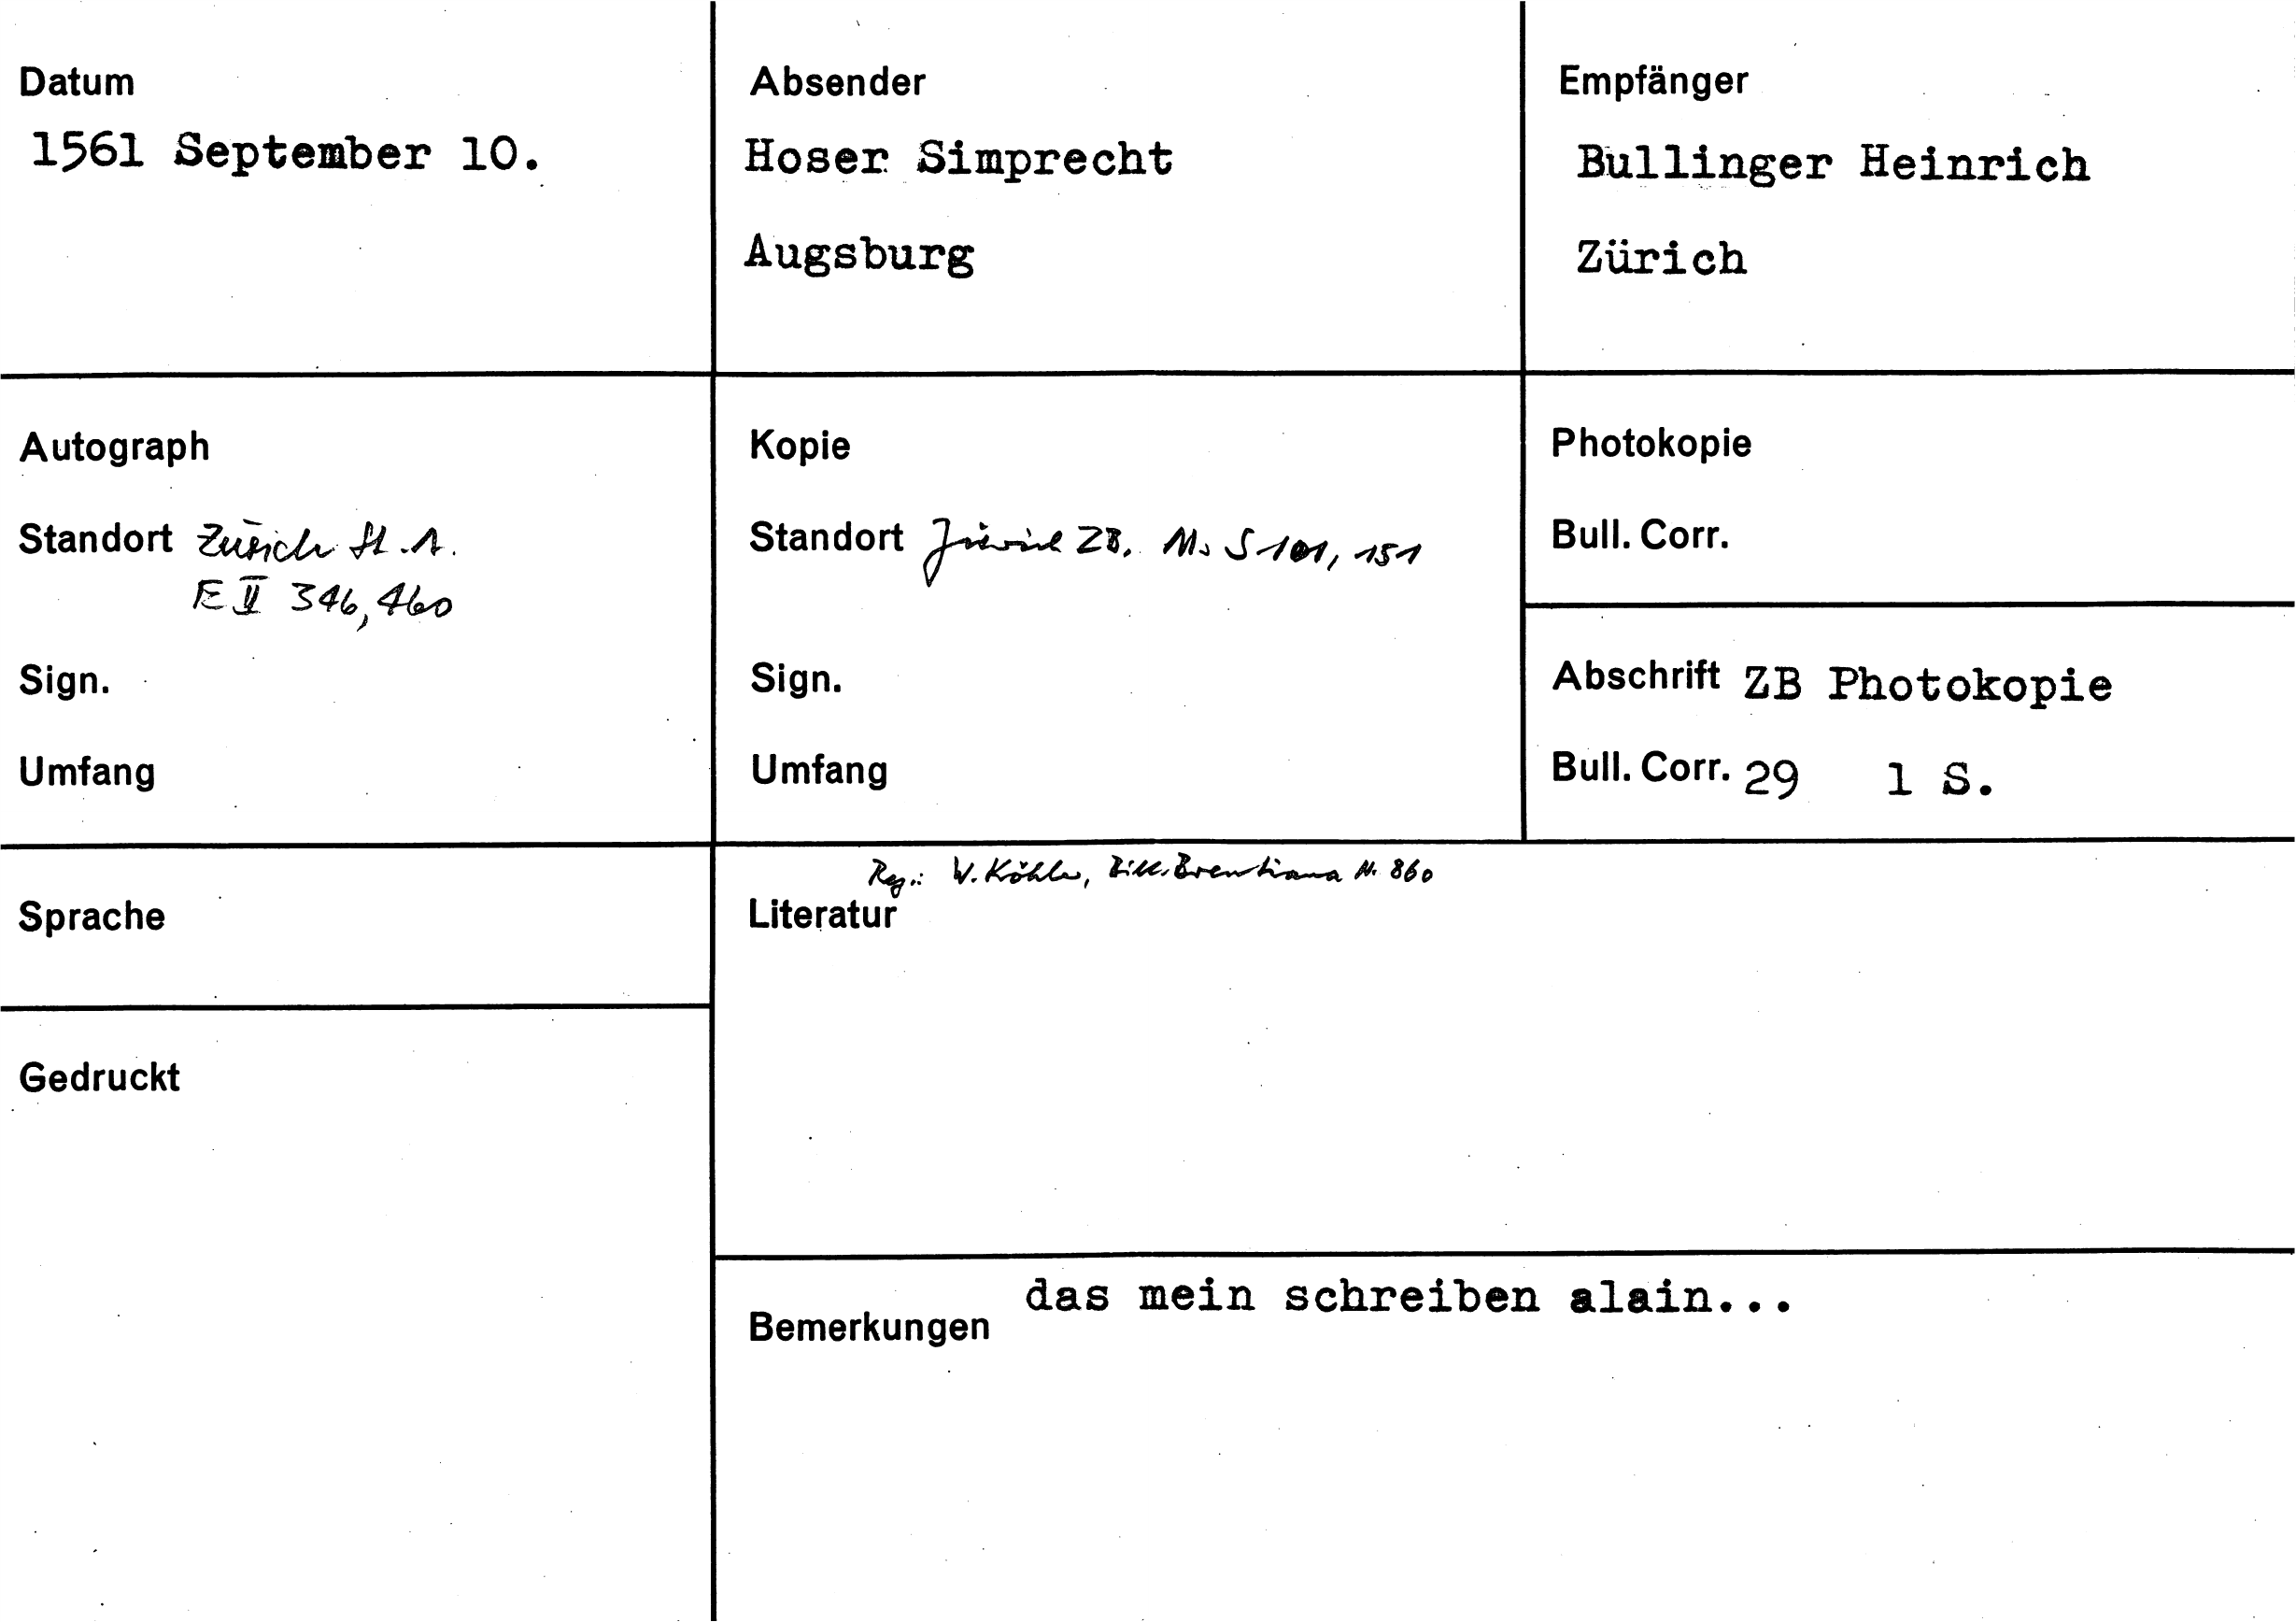 Datum
1561 September 10.
Absender
Hoser Simprecht
Augsburg
Empfänger
Bullinger Heinrich
Zürich
Autograph
Standort Zürich St.A.
E II 346, 460
Sign.
Umfang
Kopie
Standort Zürich ZB, Ms S 101, 151
Sign.
Umfang
Photokopie
Bull. Corr.
Abschrift ZB Photokopie
Bull. Corr. 29 1 S.
Sprache
Reg.: W. Köhler, Bibl. Brentiana N. 860
Literatur
Gedruckt
das mein schreiben alain...
Bemerkungen